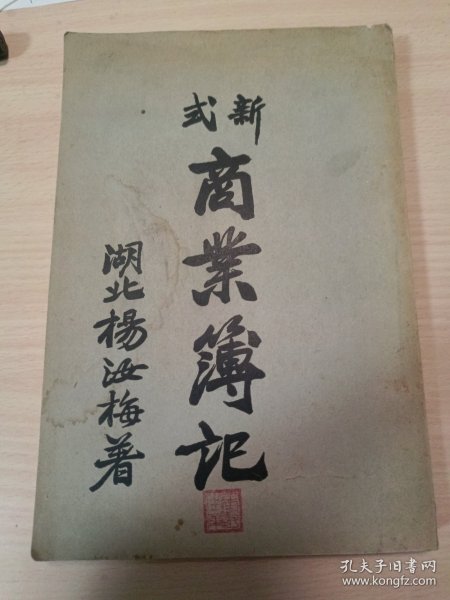 新式
商業簿記
湖北楊汝梅著
孔夫子旧书网
www.kongfz.com